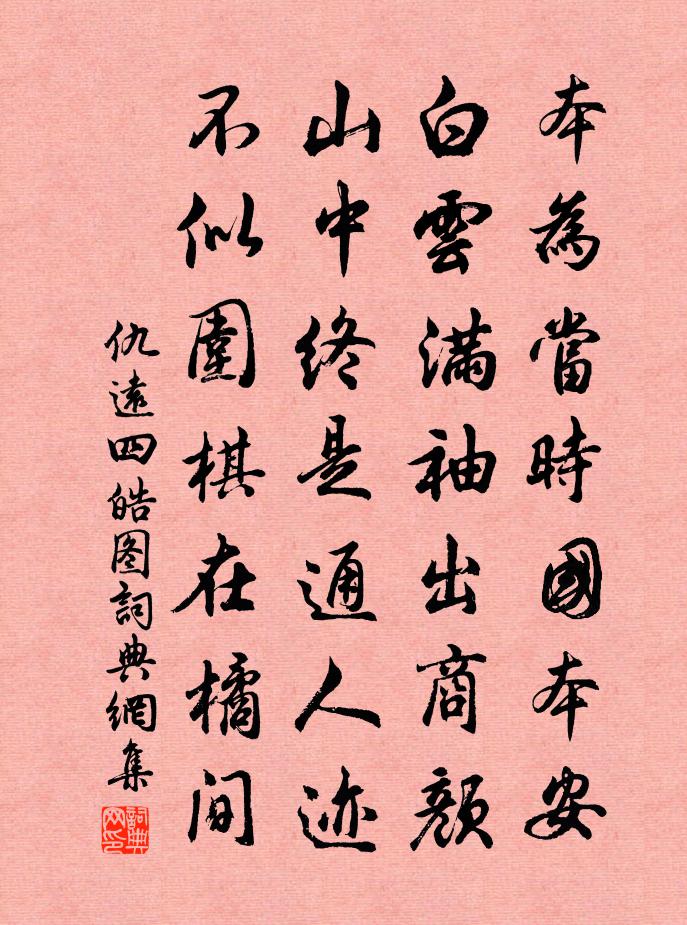 本為當時國本安
白雲滿袖出商顏
山中終是通人迹
不似圍棋在橘間
仇遠四皓图詞典網集
詞典网印